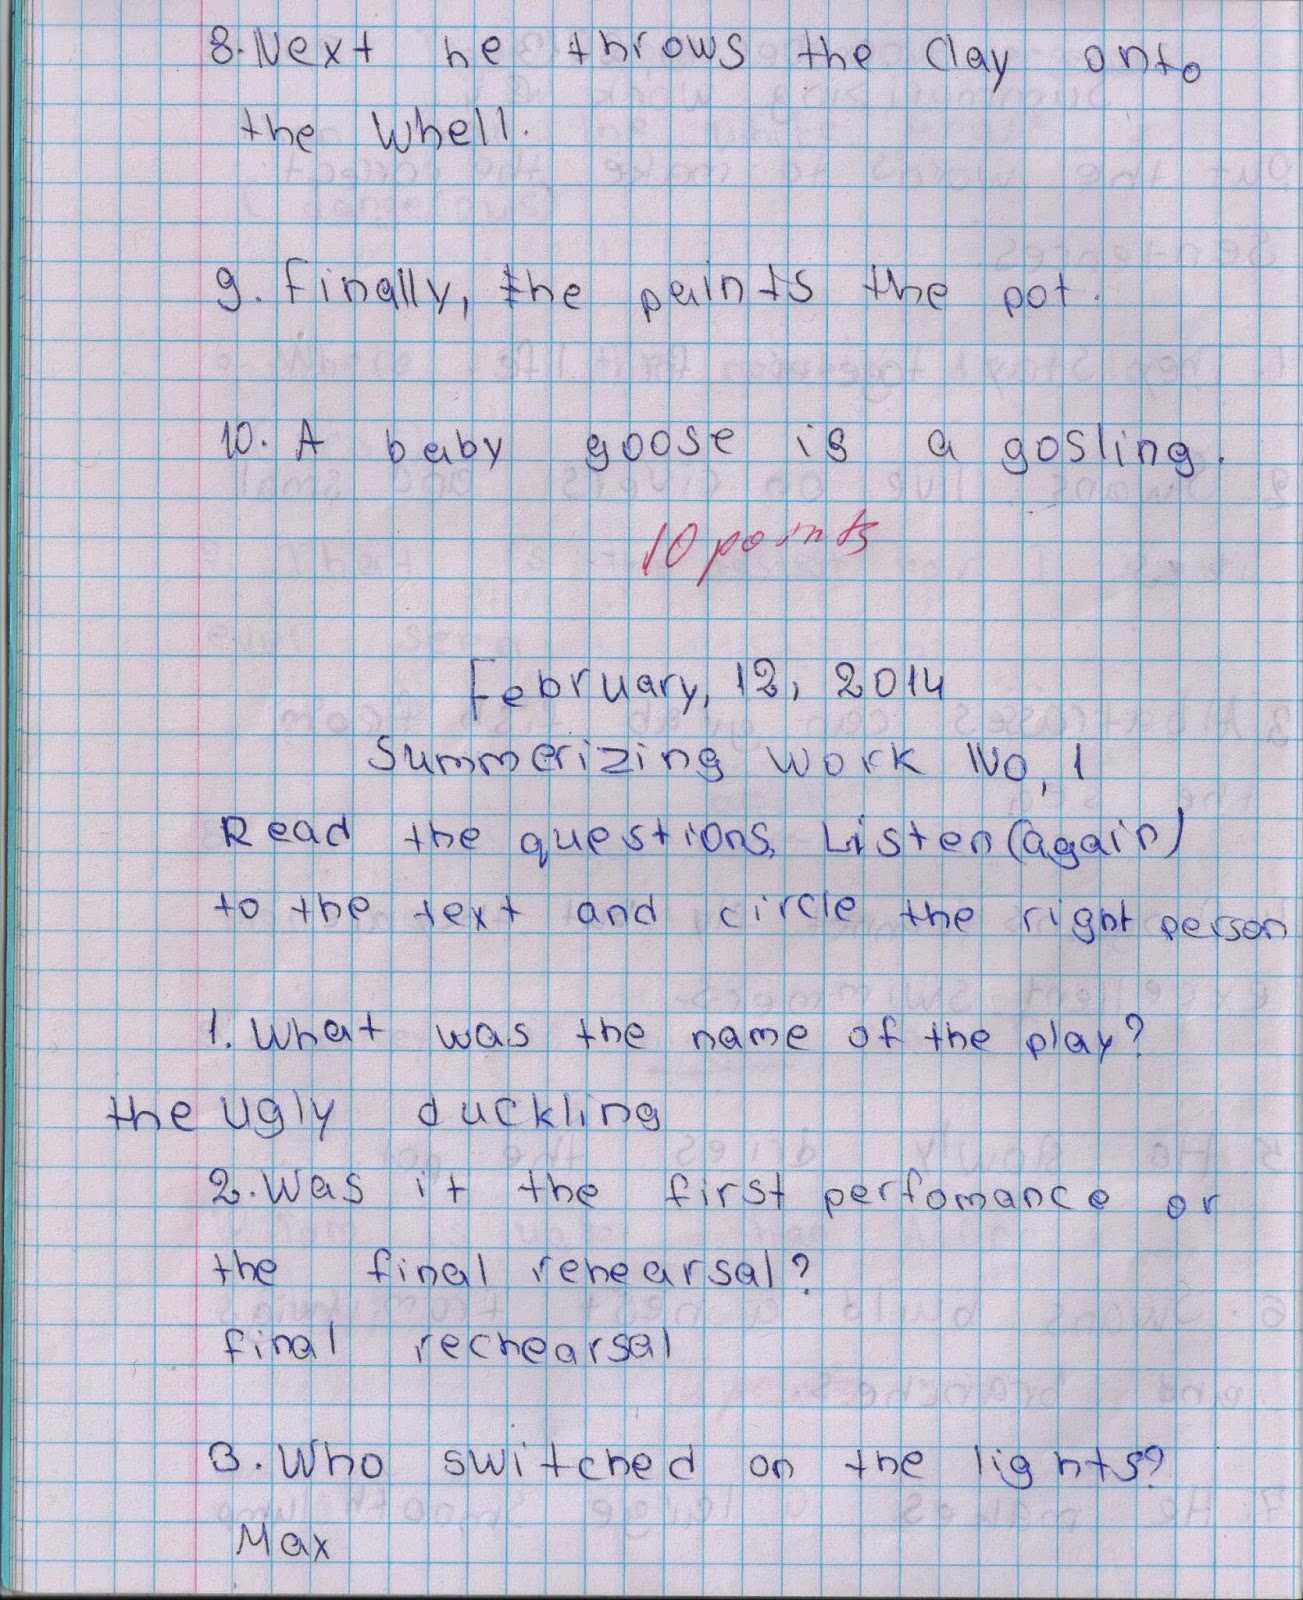 8. Next he throws the clay onto
the Whell.
9. Finally, the paints the pot.
10. A baby goose is a gosling.
10 points
February, 12, 2014
Summerizing work No, 1
Read the questions, Listen (again)
to the text and circle the right person
1. What was the name of the play?
the ugly duckling
2. Was it the first perfomance or
the final rehearsal?
final rechearsal
3. Who switched on the lights?
Max